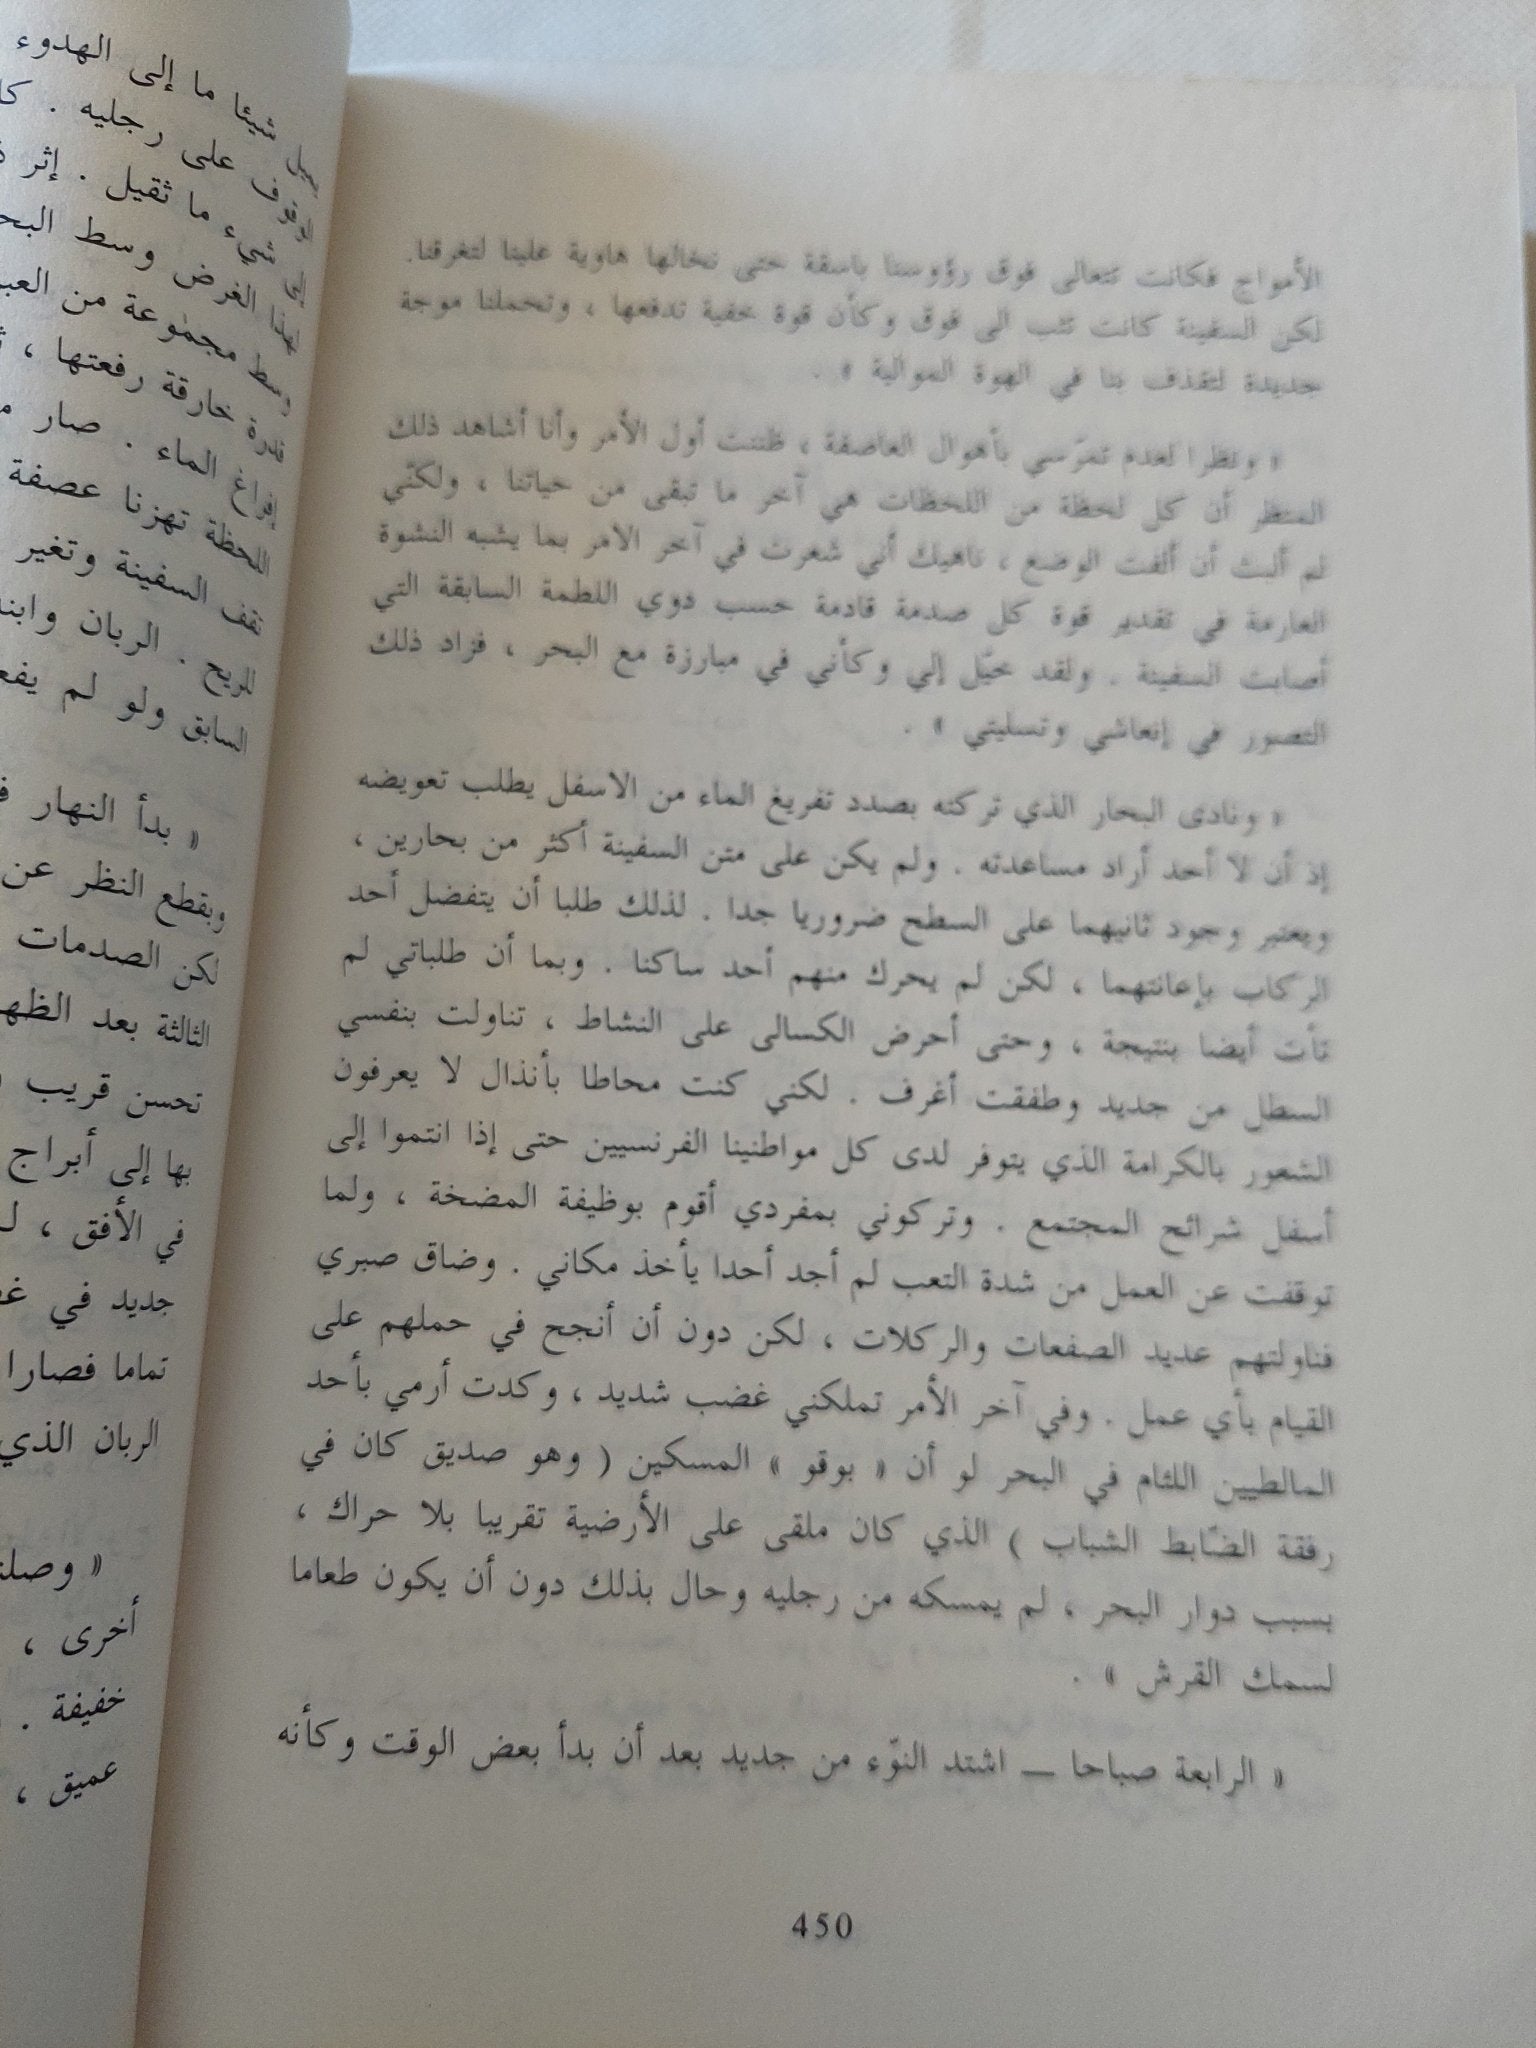 الأمواج فكانت تتعالى فوق رؤوسنا باسقة حتى نخالها هاوية علينا لتغرقنا.
لكن السفينة كانت تثب الى فوق وكأن قوة خفية تدفعها ، وتحملنا موجة
جديدة لتقذف بنا في الهوة الموالية » .
« ونظرا لعدم تمرّسي بأهوال العاصفة ، ظننت أول الأمر وأنا أشاهد ذلك
المنظر أن كل لحظة من اللحظات هي آخر ما تبقى من حياتنا ، ولكنّي
لم ألبث أن ألفت الوضع ، ناهيك أني شعرت في آخر الامر بما يشبه النشوة
العارمة في تقدير قوة كل صدمة قادمة حسب دوي اللطمة السابقة التي
أصابت السفينة . ولقد خيّل إلي وكأني في مبارزة مع البحر ، فزاد ذلك
التصور في إنعاشي وتسليتي » .
« ونادى البحار الذي تركته بصدد تفريغ الماء من الاسفل يطلب تعويضه
إذ أن لا أحد أراد مساعدته . ولم يكن على متن السفينة أكثر من بحارين ،
ويعتبر وجود ثانيهما على السطح ضروريا جدا . لذلك طلبا أن يتفضل أحد
الركاب بإعانتهما ، لكن لم يحرك منهم أحد ساكنا . وبما أن طلباتي لم
تأت أيضا بنتيجة ، وحتى أحرض الكسالى على النشاط ، تناولت بنفسي
السطل من جديد وطفقت أغرف . لكني كنت محاطا بأنذال لا يعرفون
الشعور بالكرامة الذي يتوفر لدى كل مواطنينا الفرنسيين حتى إذا انتموا إلى
أسفل شرائح المجتمع . وتركوني بمفردي أقوم بوظيفة المضخة ، ولما
توقفت عن العمل من شدة التعب لم أجد أحدا يأخذ مكاني . وضاق صبري
فناولتهم عديد الصفعات والركلات ، لكن دون أن أنجح في حملهم على
القيام بأي عمل . وفي آخر الأمر تملكني غضب شديد ، وكدت أرمي بأحد
المالطيين اللئام في البحر لو أن « بوقو » المسكين ( وهو صديق كان في
رفقة الضابط الشباب ) الذي كان ملقى على الأرضية تقريبا بلا حراك ،
بسبب دوار البحر ، لم يمسكه من رجليه وحال بذلك دون أن يكون طعاما
لسمك القرش » .
« الرابعة صباحا — اشتد النوّء من جديد بعد أن بدأ بعض الوقت وكأنه
450
شيئا ما إلى الهدوء
الوقوف على رجليه .
إلى شيء ما ثقيل . إثر
لهذا الغرض وسط
وسط مجموعة من
قدرة خارقة رفعتها ،
إفراغ الماء . صار
اللحظة تهزنا عصفة
تقف السفينة وتغير
للريح . الربان
السابق ولو لم
« بدأ النهار
وبقطع النظر عن
لكن الصدمات
الثالثة بعد
تحسن قريب
بها إلى أبراج
في الأفق ،
جديد في
تماما فصارا
الربان الذي
«
أخرى ،
خفيفة .
عميق ،